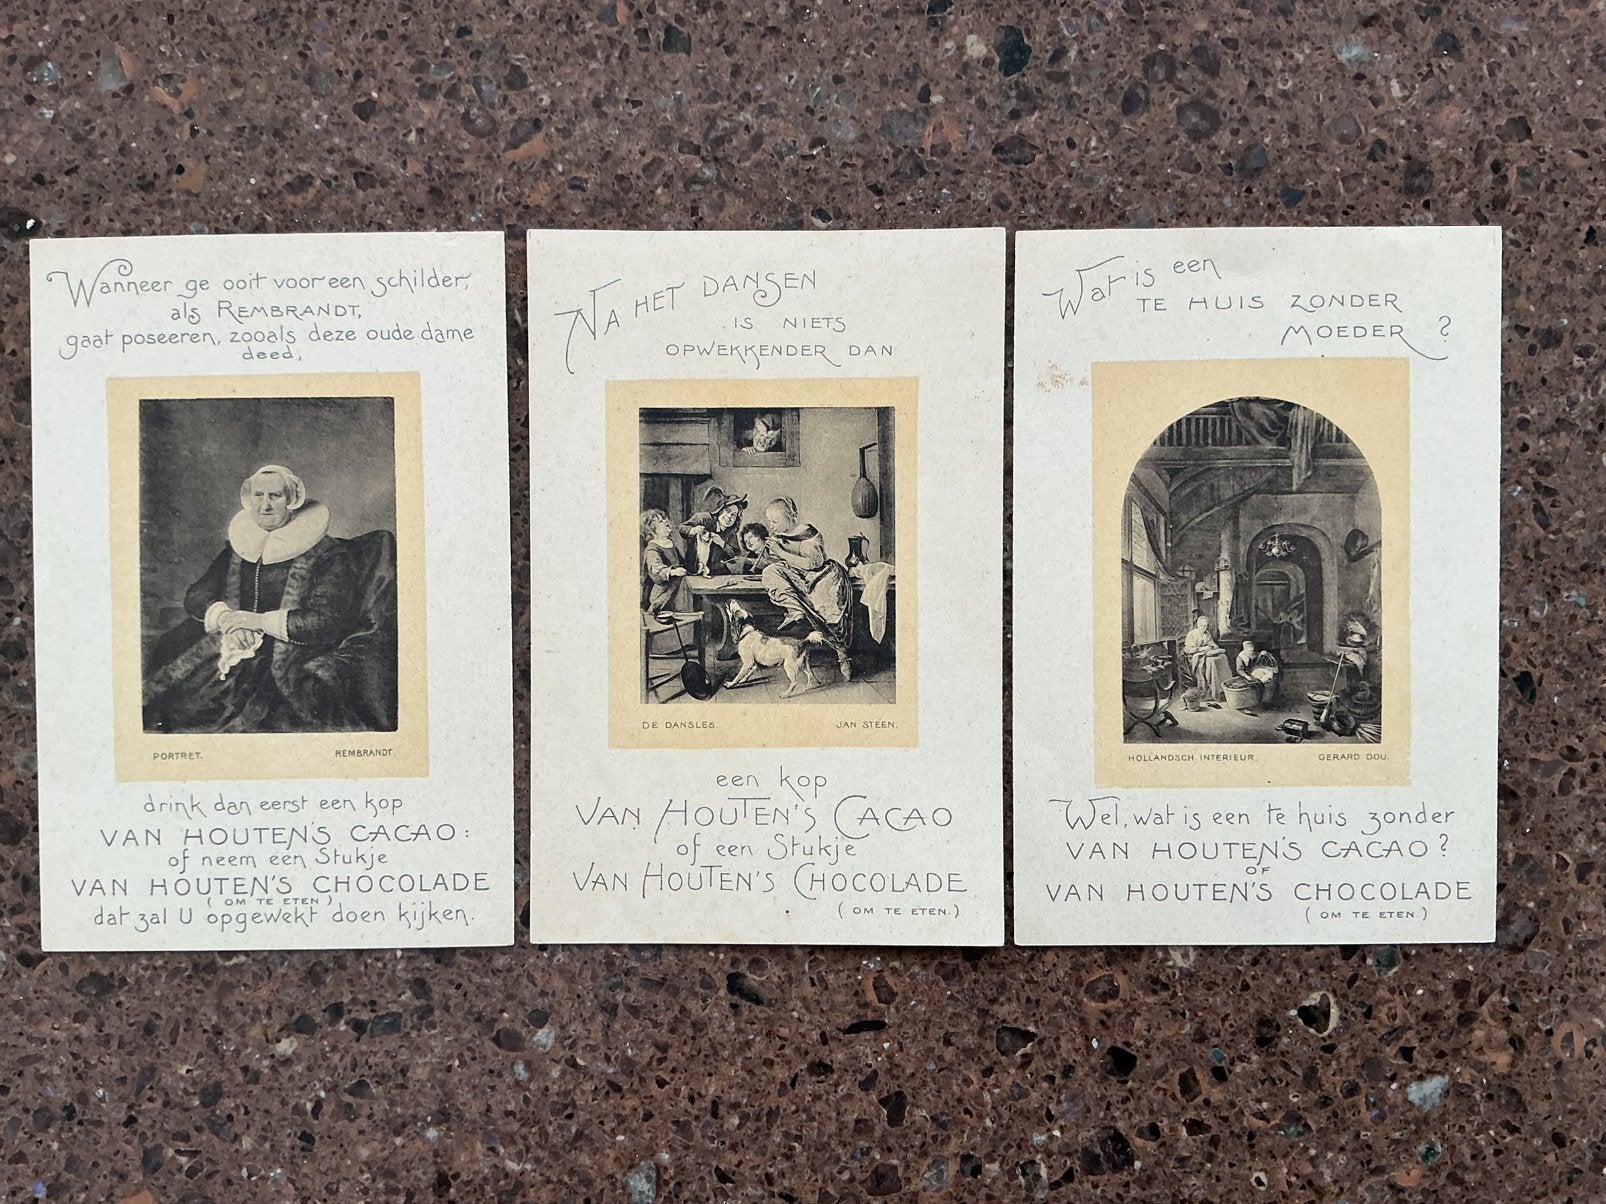 Wanneer ge ooit voor een schilder,
als REMBRANDT,
gaat poseeren, zooals deze oude dame
deed,
PORTRET. REMBRANDT.
drink dan eerst een kop
VAN HOUTEN'S CACAO:
of neem een Stukje
VAN HOUTEN'S CHOCOLADE
(OM TE ETEN)
dat zal U opgewekt doen kijken.
NA HET DANSEN
IS NIETS
OPWEKKENDER DAN
DE DANSLES. JAN STEEN.
een kop
VAN HOUTEN'S CACAO
of een Stukje
VAN HOUTEN'S CHOCOLADE
(OM TE ETEN.)
Wat is een
TE HUIS ZONDER
MOEDER?
HOLLANDSCH INTERIEUR. GERARD DOU.
Wel, wat is een te huis zonder
VAN HOUTEN'S CACAO?
OF
VAN HOUTEN'S CHOCOLADE
(OM TE ETEN)